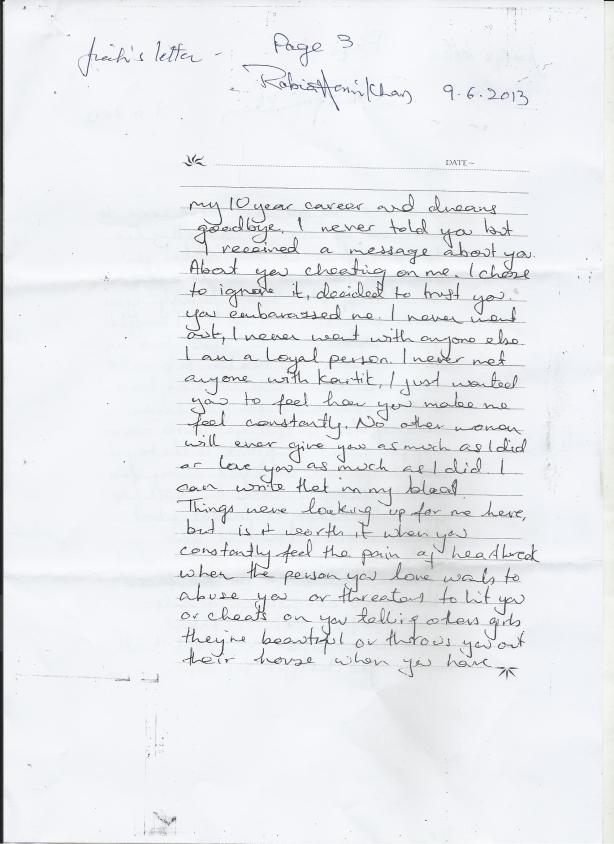 Jiah's letter -
Page 3
Rabia Amin Khan 9.6.2013
DATE-
my 10 year career and dreams
goodbye. I never told you but
I received a message about you.
About you cheating on me. I chose
to ignore it, decided to trust you.
you embarassed me. I never went
out, I never went with anyone else.
I am a loyal person. I never met
anyone with Kartik, I just wanted
you to feel how you make me
feel constantly. No other woman
will ever give you as much as I did
or love you as much as I did. I
can write that in my blood.
Things were looking up for me here,
but is it worth it when you
constantly feel the pain of heartbreak
when the person you love wants to
abuse you or threatens to hit you
or cheats on you telling others girls
they're beautiful or throws you out
their house when you have